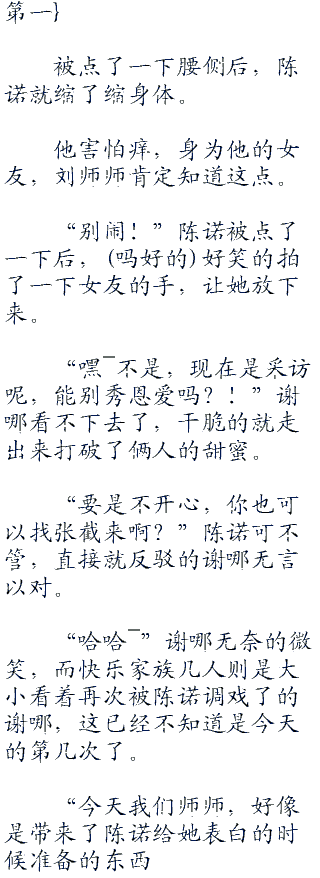 第一}
被点了一下腰侧后，陈
诺就缩了缩身体。
他害怕痒，身为他的女
友，刘师师肯定知道这点。
“别闹！”陈诺被点了
一下后，(吗好的)好笑的拍
了一下女友的手，让她放下
来。
“嘿‾不是，现在是采访
呢，能别秀恩爱吗？！”谢
哪看不下去了，干脆的就走
出来打破了俩人的甜蜜。
“要是不开心，你也可
以找张截来啊？”陈诺可不
管，直接就反驳的谢哪无言
以对。
“哈哈‾”谢哪无奈的微
笑，而快乐家族几人则是大
小看着再次被陈诺调戏了的
谢哪，这已经不知道是今天
的第几次了。
“今天我们师师，好像
是带来了陈诺给她表白的时
候准备的东西